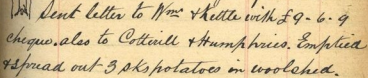 Sent letter to Wms & Kettle with £9-6-9
cheque. also to Cotterill & Humphries. Emptied
& spread out 3 sks potatoes in woolshed.